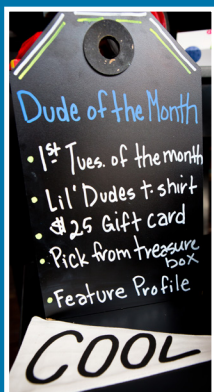 Dude of the Month
• 1st Tues. of the month
• Lil' Dudes t-shirt
$25 Gift card
• Pick from treasure
box
• Feature Profile
COOL